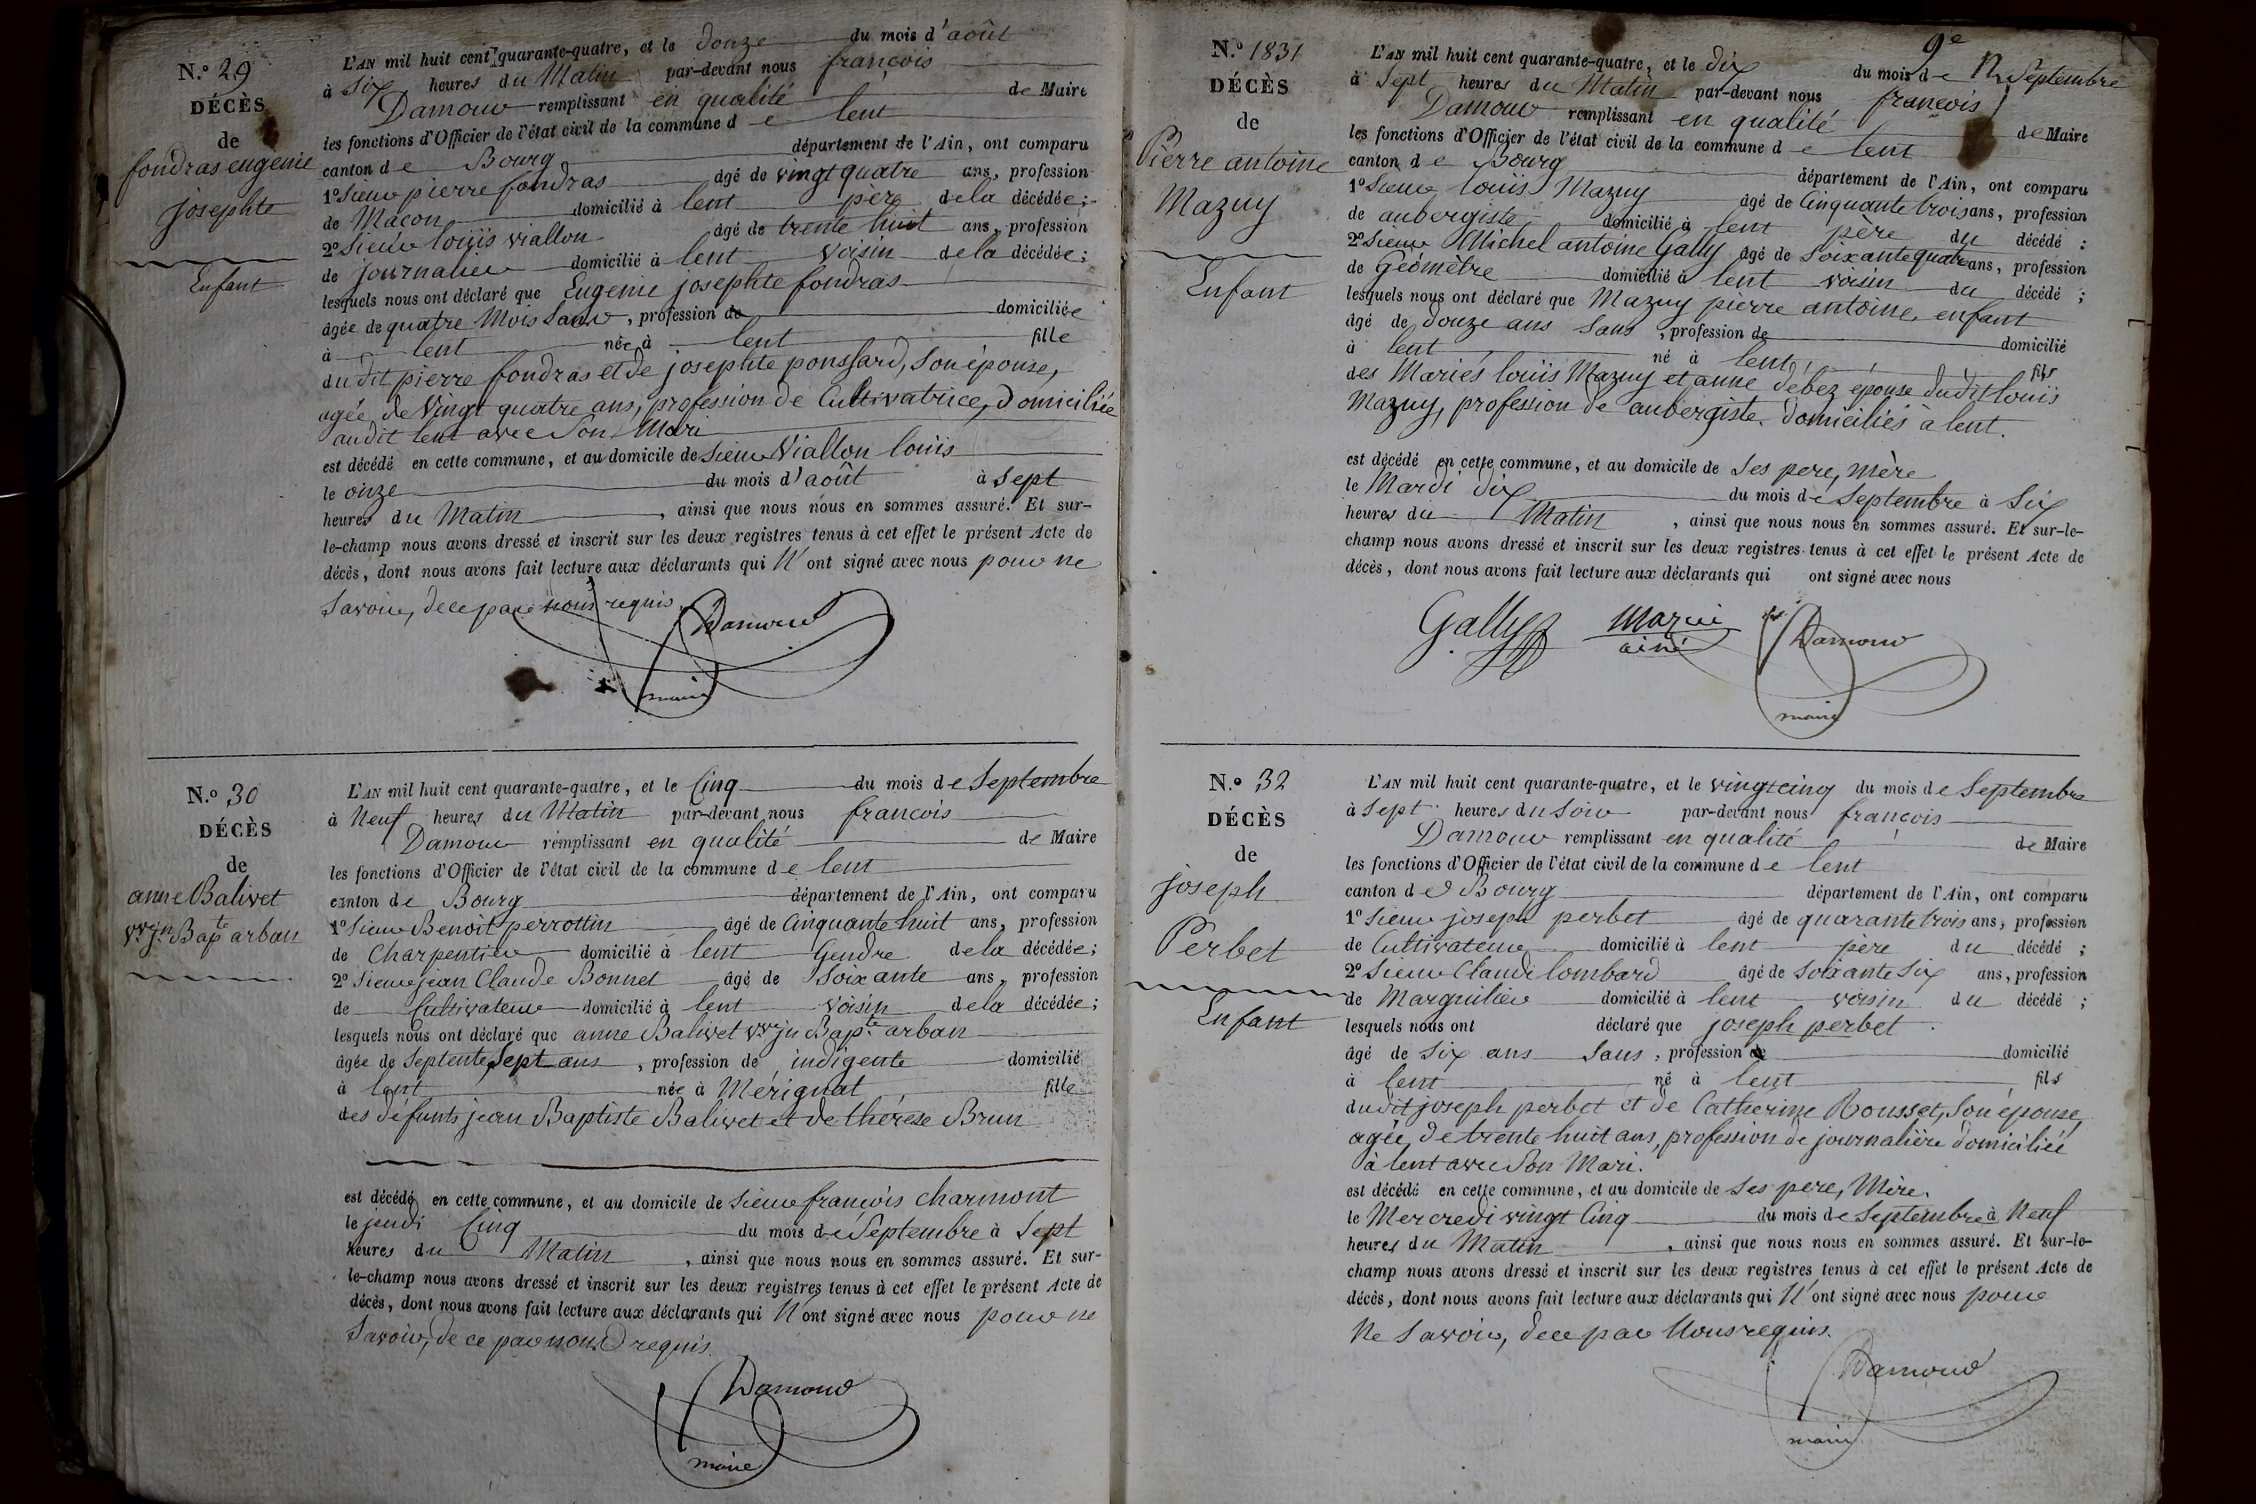 N.° 29
DÉCÈS
de
fondras eugenie
josephte
Enfant
L'AN mil huit cent quarante-quatre, et le douze du mois d'août
à six heures du Matin par-devant nous françois
Damour remplissant en qualité de Maire
les fonctions d'Officier de l'état civil de la commune de lent
canton de Bourg département de l'Ain, ont comparu
1° Sieur pierre fondras âgé de vingt quatre ans, profession
de Maçon domicilié à lent père de la décédée;
2° Sieur louis viallon âgé de trente huit ans, profession
de journalier domicilié à lent voisin de la décédée;
lesquels nous ont déclaré que Eugenie josephte fondras
âgée de quatre Mois Sans, profession de domiciliée
à lent née à lent fille
du dit pierre fondras et de josephte ponssard, son épouse,
agée de Vingt quatre ans, profession de Cultivatrice, Domiciliée
audit lent avec Son Mari
est décédé en cette commune, et au domicile de Sieur Viallon louis
le onze du mois d'août à Sept
heures du Matin, ainsi que nous nous en sommes assuré. Et sur-
le-champ nous avons dressé et inscrit sur les deux registres tenus à cet effet le présent Acte de
décès, dont nous avons fait lecture aux déclarants qui N'ont signé avec nous pour ne
Savoir, de ce par nous requis.
Damour
maire
N.° 30
DÉCÈS
de
anne Balivet
vve jn Bapte arban
L'AN mil huit cent quarante-quatre, et le Cinq du mois de Septembre
à Neuf heures du Matin par-devant nous francois
Damour remplissant en qualité de Maire
les fonctions d'Officier de l'état civil de la commune de lent
canton de Bourg département de l'Ain, ont comparu
1° Sieur Benoit perrottin âgé de Cinquante huit ans, profession
de Charpentier domicilié à lent Gendre de la décédée;
2° Sieur jean Claude Bonnet âgé de Soixante ans, profession
de Cultivateur domicilié à lent voisin de la décédée;
lesquels nous ont déclaré que anne Balivet vve jn Bapte arban
âgée de Septente Sept ans, profession de indigente domicilié
à lent née à Mérignat fille
des défunts jean Baptiste Balivet et de thérèse Brun
est décédé en cette commune, et au domicile de Sieur françois charmont
le jeudi Cinq du mois de Septembre à Sept
heures du Matin, ainsi que nous nous en sommes assuré. Et sur-
le-champ nous avons dressé et inscrit sur les deux registres tenus à cet effet le présent Acte de
décès, dont nous avons fait lecture aux déclarants qui N'ont signé avec nous pour ne
Savoir, de ce par nous requis.
Damour
maire
9e
N.° 1831
DÉCÈS
de
Pierre antoine
Mazuy
Enfant
L'AN mil huit cent quarante-quatre, et le dix du mois de Septembre
à Sept heures du Matin par-devant nous françois
Damour remplissant en qualité de Maire
les fonctions d'Officier de l'état civil de la commune de lent
canton de Bourg département de l'Ain, ont comparu
1° Sieur louis Mazuy âgé de Cinquante trois ans, profession
de aubergiste domicilié à lent père du décédé;
2° Sieur Michel antoine Gally âgé de Soixante quatre ans, profession
de Géomètre domicilié à lent voisin du décédé;
lesquels nous ont déclaré que Mazuy pierre antoine, enfant
âgé de douze ans Sans, profession de domicilié
à lent né à lent fils
des Mariés louis Mazuy et anne debez épouse dudit louis
Mazuy, profession de aubergiste domiciliés à lent.
est décédé en cette commune, et au domicile de Ses pere, mère
le Mardi dix du mois de Septembre à Six
heures du Matin, ainsi que nous nous en sommes assuré. Et sur-le-
champ nous avons dressé et inscrit sur les deux registres tenus à cet effet le présent Acte de
décès, dont nous avons fait lecture aux déclarants qui ont signé avec nous
Gally Mazui Damour
ainé
maire
N.° 32
DÉCÈS
de
joseph
Perbet
Enfant
L'AN mil huit cent quarante-quatre, et le vingt cinq du mois de Septembre
à Sept heures du Soir par-devant nous françois
Damour remplissant en qualité de Maire
les fonctions d'Officier de l'état civil de la commune de lent
canton de Bourg département de l'Ain, ont comparu
1° Sieur joseph perbet âgé de quarante trois ans, profession
de Cultivateur domicilié à lent père du décédé;
2° Sieur Claude lombard âgé de Soixante Six ans, profession
de Marguilier domicilié à lent voisin du décédé;
lesquels nous ont déclaré que joseph perbet.
âgé de Six ans Sans, profession de domicilié
à lent né à lent fils
dudit joseph perbet et de Catherine Rousset, Son épouse,
agée de trente huit ans, profession de journalière domiciliée
à lent avec Son Mari.
est décédé en cette commune, et au domicile de Ses pere, Mère.
le Mercredi vingt Cinq du mois de Septembre à Neuf
heures du Matin, ainsi que nous nous en sommes assuré. Et sur-le-
champ nous avons dressé et inscrit sur les deux registres tenus à cet effet le présent Acte de
décès, dont nous avons fait lecture aux déclarants qui N'ont signé avec nous pour
Ne Savoir, de ce par Nous requis.
Damour
maire